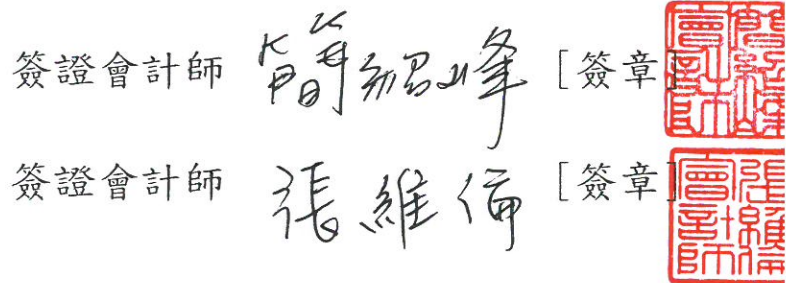 簽證會計師 簡紹峰 [簽章] 簡紹峰會計師
簽證會計師 張維倫 [簽章] 張維倫會計師